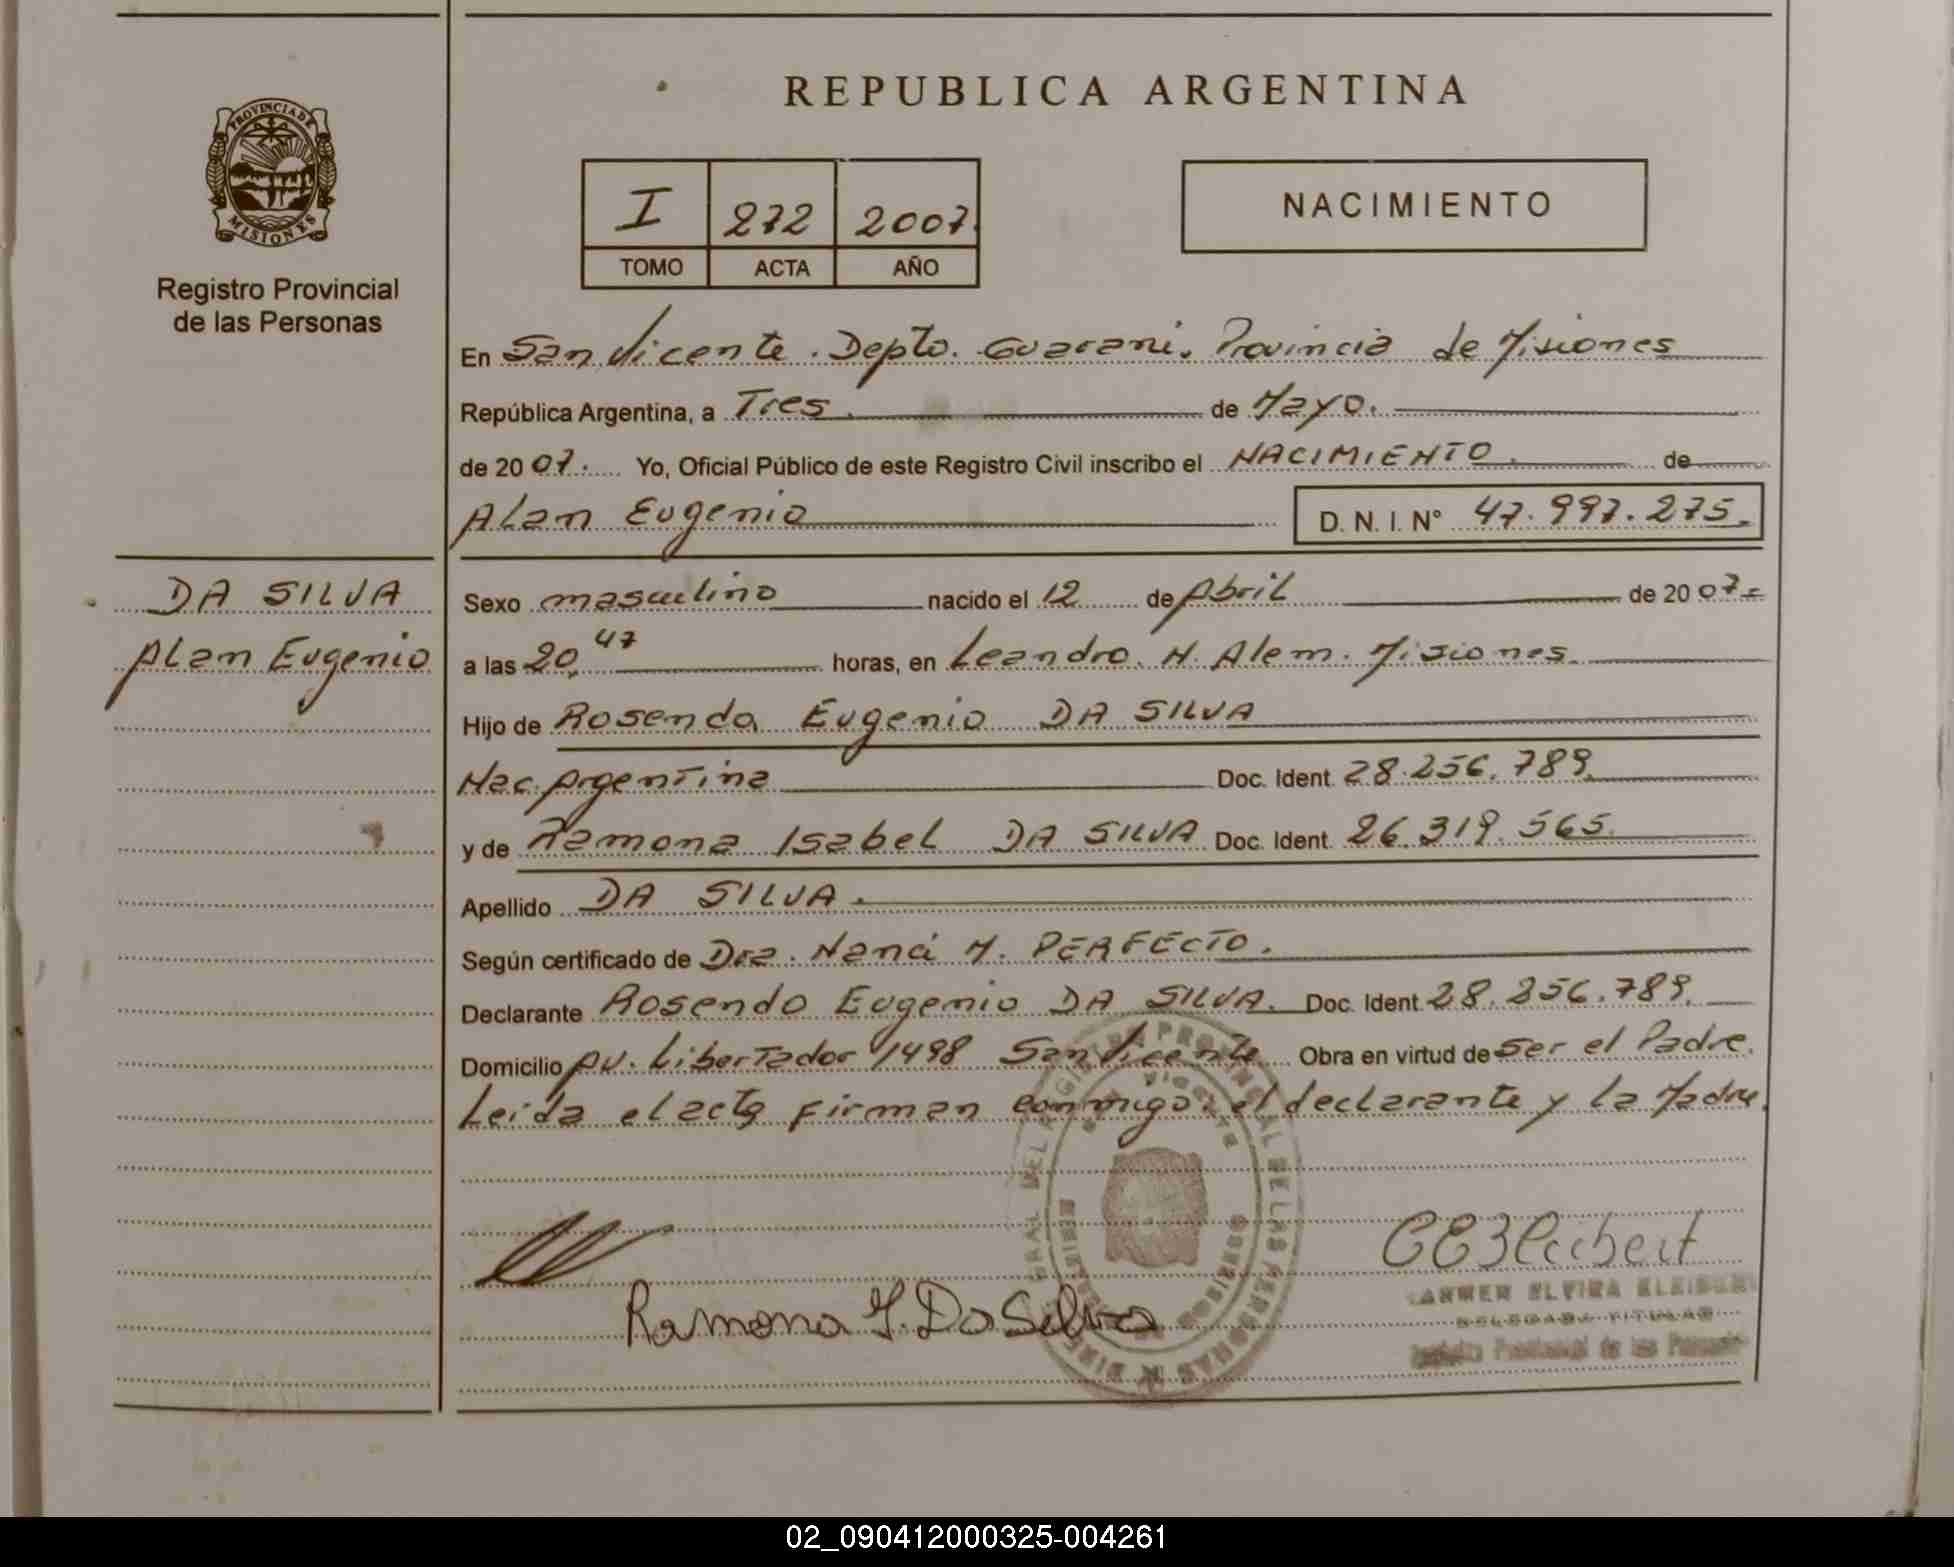 REPUBLICA ARGENTINA
PROVINCIA DE
MISIONES
Registro Provincial
de las Personas
I 272 2007.
TOMO ACTA AÑO
NACIMIENTO
En San Vicente. Depto. Guarani. Provincia de Misiones
República Argentina, a Tres. de Mayo.
de 2007. Yo, Oficial Público de este Registro Civil inscribo el NACIMIENTO. de
Alan Eugenio D. N. I. N° 47.997.275.
DA SILVA
Alan Eugenio
Sexo masculino nacido el 12 de Abril de 2007.
a las 20,47 horas, en Leandro. N. Alem. Misiones.
Hijo de Rosendo Eugenio DA SILVA
Nac. Argentina Doc. Ident. 28.256.789.
y de Ramona Isabel DA SILVA Doc. Ident. 26.319.565.
Apellido DA SILVA.
Según certificado de Dra. Naná M. PERFECTO.
Declarante Rosendo Eugenio DA SILVA. Doc. Ident. 28.256.789.
Domicilio Av. Libertador 1498 San Vicente Obra en virtud de Ser el Padre.
Leida el acta firman conmigo. el declarante y la Madre.
Ramona I. Da Silva
DELEGADA TITULAR
Registro Provincial de las Personas
02_090412000325-004261